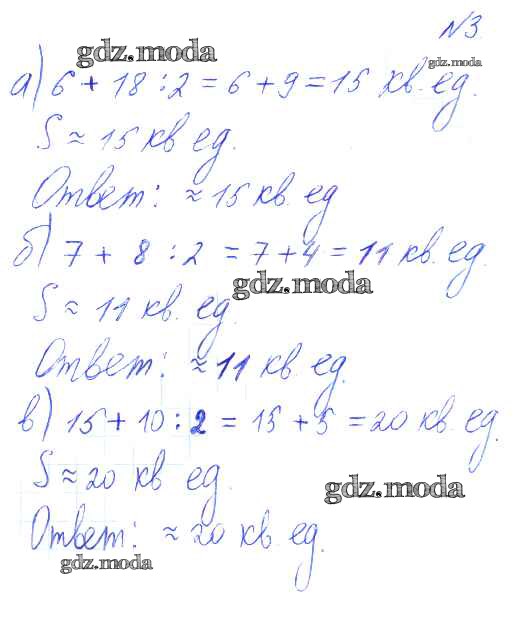 №3
gdz.moda
gdz.moda
а) 6 + 18 : 2 = 6 + 9 = 15 кв. ед.
S ≈ 15 кв ед.
Ответ: ≈ 15 кв. ед
б) 7 + 8 : 2 = 7 + 4 = 11 кв. ед.
gdz.moda
S ≈ 11 кв. ед.
Ответ: ≈ 11 кв. ед.
в) 15 + 10 : 2 = 15 + 5 = 20 кв. ед.
S ≈ 20 кв ед.
gdz.moda
Ответ: ≈ 20 кв. ед.
gdz.moda